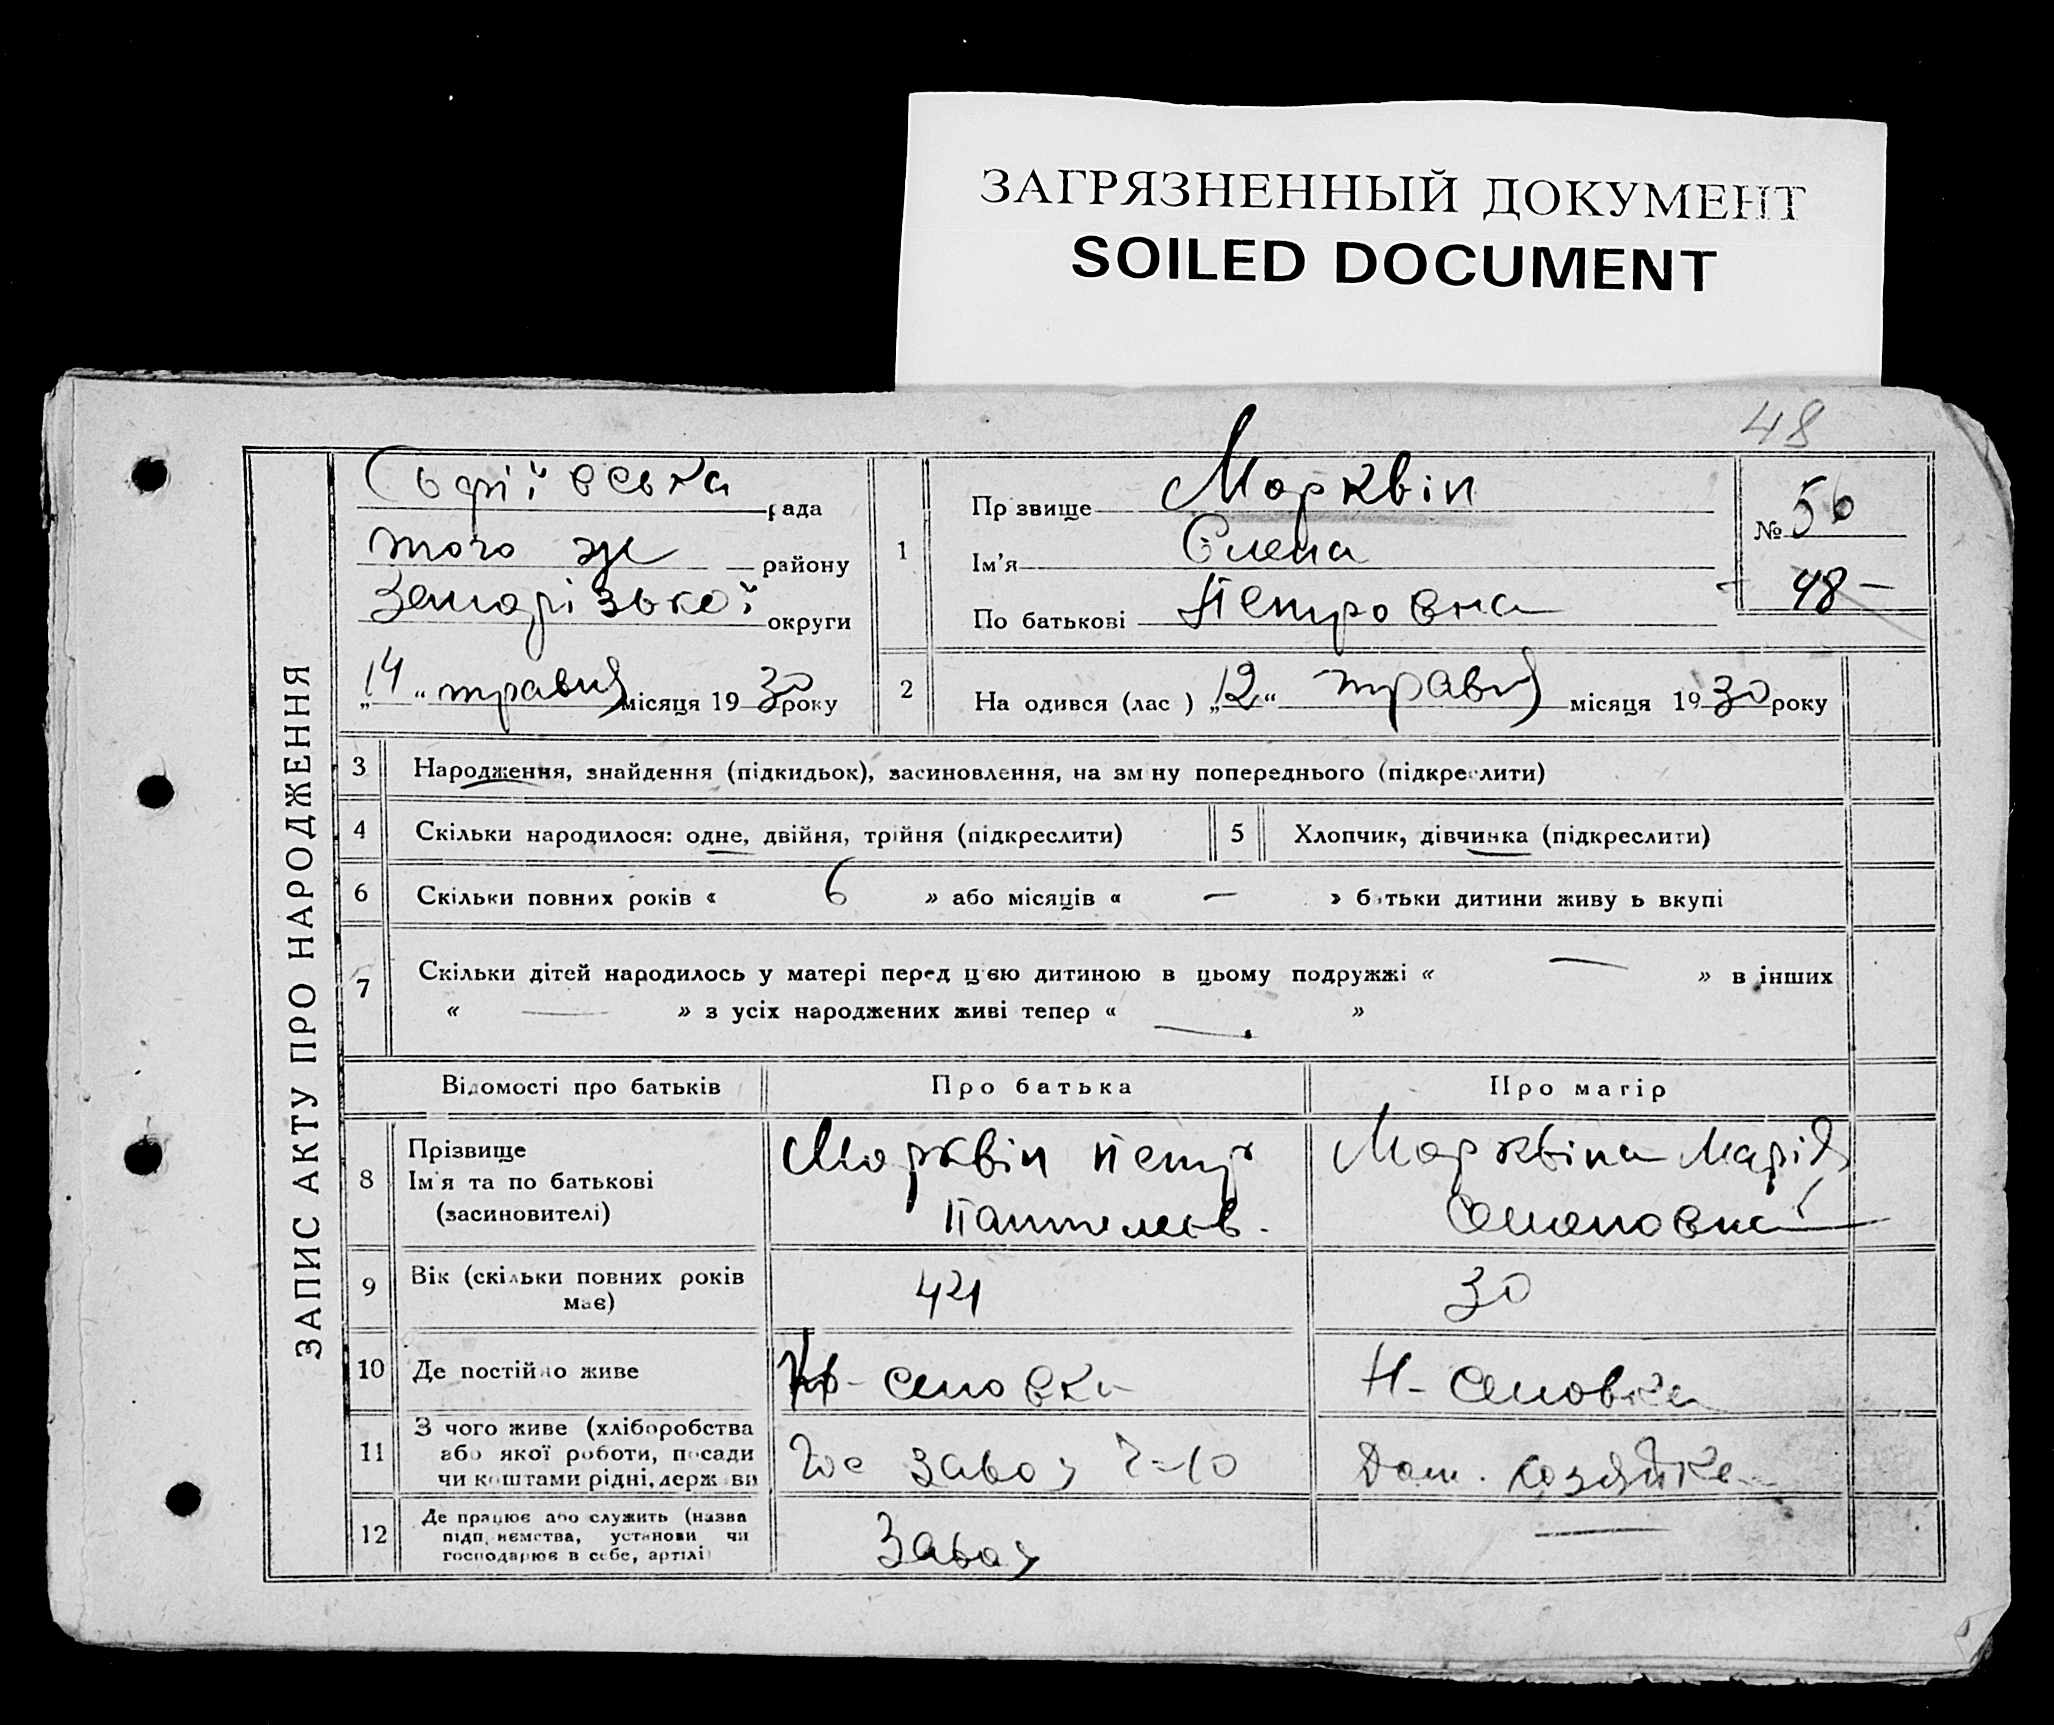 ЗАГРЯЗНЕННЫЙ ДОКУМЕНТ
SOILED DOCUMENT
48
ЗАПИС АКТУ ПРО НАРОДЖЕННЯ
Софіївська рада
того ж району
Запорізької округи
„14“ травня місяця 1930 року
1
Пр звище Марквін
Ім'я Елена
По батькові Петровна
№ 56
48 —
2
На одився (лас ) „12“ травня місяця 1930 року
3 Народження, знайдення (підкидьок), засиновлення, на зм ну попереднього (підкреслити)
4 Скільки народилося: одне, двійня, трійня (підкреслити)
5 Хлопчик, дівчинка (підкреслити)
6 Скільки повних років « 6 » або місяців « — » батьки дитини живу ь вкупі
7 Скільки дітей народилось у матері перед цією дитиною в цьому подружжі « — » в інших
« — » з усіх народжених живі тепер « — »
Відомості про батьків Про батька Про матір
8 Прізвище
Ім'я та по батькові
(засиновителі)
Марквін Петр
Пантелев.
Марквіна Марія
Семеновна
9 Вік (скільки повних років
має)
30
10 Де постійно живе
слновка
Н-
11 З чого живе (хліборобства
або якої роботи, посади
чи коштами рідні, держави
завод
Дом. хозяйка
12 Де працює або служить (назва
підп иємства, установи чи
господарює в себе, артілі)
Завод —